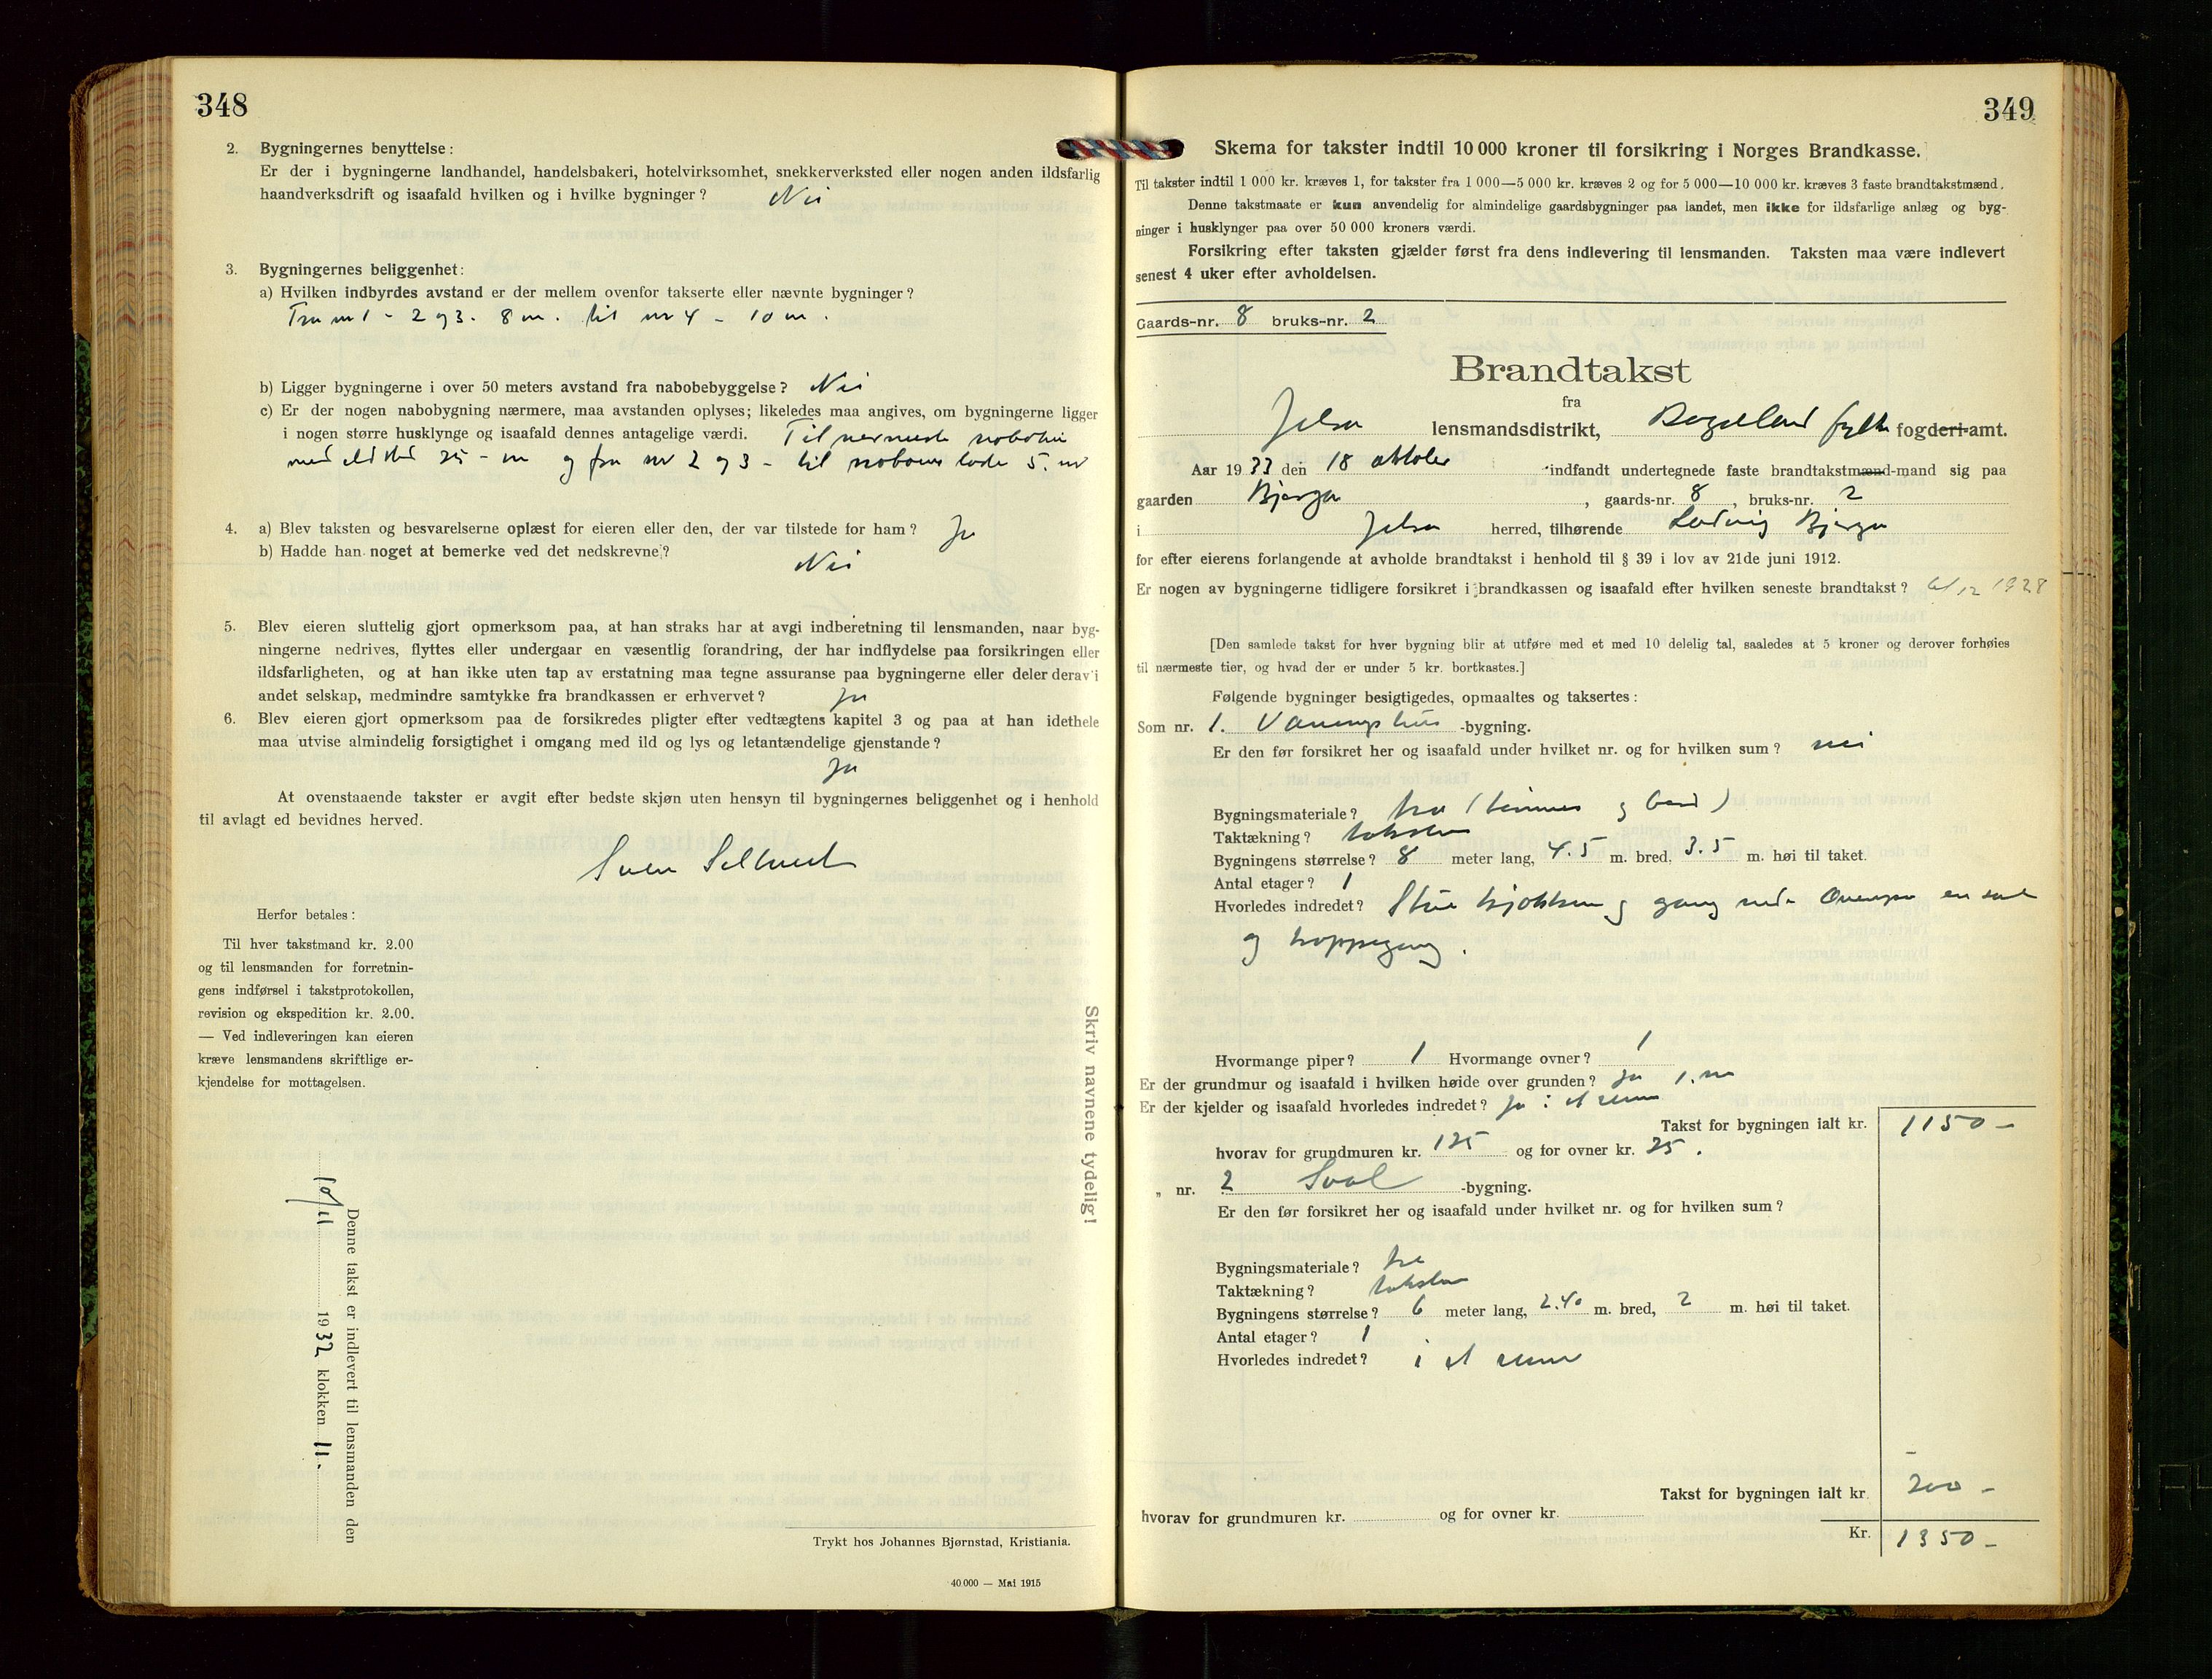 348
2. Bygningernes benyttelse:
Er der i bygningerne landhandel, handelsbakeri, hotelvirksomhet, snekkerverksted eller nogen anden ildsfarlig
haandverksdrift og isaafald hvilken og i hvilke bygninger? Nei
3. Bygningernes beliggenhet:
a) Hvilken indbyrdes avstand er der mellem ovenfor takserte eller nævnte bygninger?
Fra nr 1 - 2 og 3 - 8 m. til nr 4 - 10 m.
b) Ligger bygningerne i over 50 meters avstand fra nabobebyggelse? Nei
c) Er der nogen nabobygning nærmere, maa avstanden oplyses; likeledes maa angives, om bygningerne ligger
i nogen større husklynge og isaafald dennes antagelige værdi. Til nermeste
med ildsted 25 - m og fra nr 2 og 3 - til naboens løde 5. m
4. a) Blev taksten og besvarelserne oplæst for eieren eller den, der var tilstede for ham? Ja
b) Hadde han noget at bemerke ved det nedskrevne? Nei
5. Blev eieren sluttelig gjort opmerksom paa, at han straks har at avgi indberetning til lensmanden, naar byg-
ningerne nedrives, flyttes eller undergaar en væsentlig forandring, der har indflydelse paa forsikringen eller
ildsfarligheten, og at han ikke uten tap av erstatning maa tegne assuranse paa bygningerne eller deler derav i
andet selskap, medmindre samtykke fra brandkassen er erhvervet? Ja
6. Blev eieren gjort opmerksom paa de forsikredes pligter efter vedtægtens kapitel 3 og paa at han idethele
maa utvise almindelig forsigtighet i omgang med ild og lys og letantændelige gjenstande?
Ja
At ovenstaaende takster er avgit efter bedste skjøn uten hensyn til bygningernes beliggenhet og i henhold
til avlagt ed bevidnes herved.
Svein
Herfor betales:
Til hver takstmand kr. 2.00
og til lensmanden for forretnin-
gens indførsel i takstprotokollen,
revision og ekspedition kr. 2.00.
— Ved indleveringen kan eieren
kræve lensmandens skriftlige er-
kjendelse for mottagelsen.
Skriv navnene tydelig!
Denne takst er indlevert til lensmanden den
10/11 1932 klokken 11.
Trykt hos Johannes Bjørnstad, Kristiania.
40.000 — Mai 1915
349
Skema for takster indtil 10 000 kroner til forsikring i Norges Brandkasse.
Til takster indtil 1 000 kr. kræves 1, for takster fra 1 000—5 000 kr. kræves 2 og for 5 000—10 000 kr. kræves 3 faste brandtakstmænd.
Denne takstmaate er kun anvendelig for almindelige gaardsbygninger paa landet, men ikke for ildsfarlige anlæg og byg-
ninger i husklynger paa over 50 000 kroners værdi.
Forsikring efter taksten gjælder først fra dens indlevering til lensmanden. Taksten maa være indlevert
senest 4 uker efter avholdelsen.
Gaards-nr. 8 bruks-nr. 2
Brandtakst
fra
Jelsa lensmandsdistrikt, Rogaland fylke fogderi-amt.
Aar 1933 den 18 oktober indfandt undertegnede faste brandtakstmænd-mand sig paa
gaarden Bjerga, gaards-nr. 8, bruks-nr. 2
i Jelsa herred, tilhørende Ludvig Bjerga
for efter eierens forlangende at avholde brandtakst i henhold til § 39 i lov av 21de juni 1912.
Er nogen av bygningerne tidligere forsikret i brandkassen og isaafald efter hvilken seneste brandtakst? 6/12 1928
[Den samlede takst for hver bygning blir at utføre med et med 10 delelig tal, saaledes at 5 kroner og derover forhøies
til nærmeste tier, og hvad der er under 5 kr. bortkastes.]
Følgende bygninger besigtigedes, opmaaltes og taksertes:
Som nr. 1. Vaaningshus -bygning.
Er den før forsikret her og isaafald under hvilket nr. og for hvilken sum? nei
Bygningsmateriale? tre (tømmer og bord)
Taktækning? taksten
Bygningens størrelse? 8 meter lang, 4.5 m. bred, 3.5 m. høi til taket.
Antal etager? 1
Hvorledes indredet? Stue kjøkken og gang nede Ovenpaa en sal
og trappegang.
Hvormange piper? 1 Hvormange ovner? 1
Er der grundmur og isaafald i hvilken høide over grunden? ja 1. m
Er der kjelder og isaafald hvorledes indredet? ja i et rum
Takst for bygningen ialt kr. 1150 -
hvorav for grundmuren kr. 125 og for ovner kr. 25.
„ nr. 2 Sval -bygning.
Er den før forsikret her og isaafald under hvilket nr. og for hvilken sum?
Bygningsmateriale? tre
Taktækning? taksten
Bygningens størrelse? 6 meter lang, 2.40 m. bred, 2 m. høi til taket.
Antal etager? 1
Hvorledes indredet? i et rum
Takst for bygningen ialt kr. 200 -
hvorav for grundmuren kr. og for ovner kr.
Kr. 1350 -